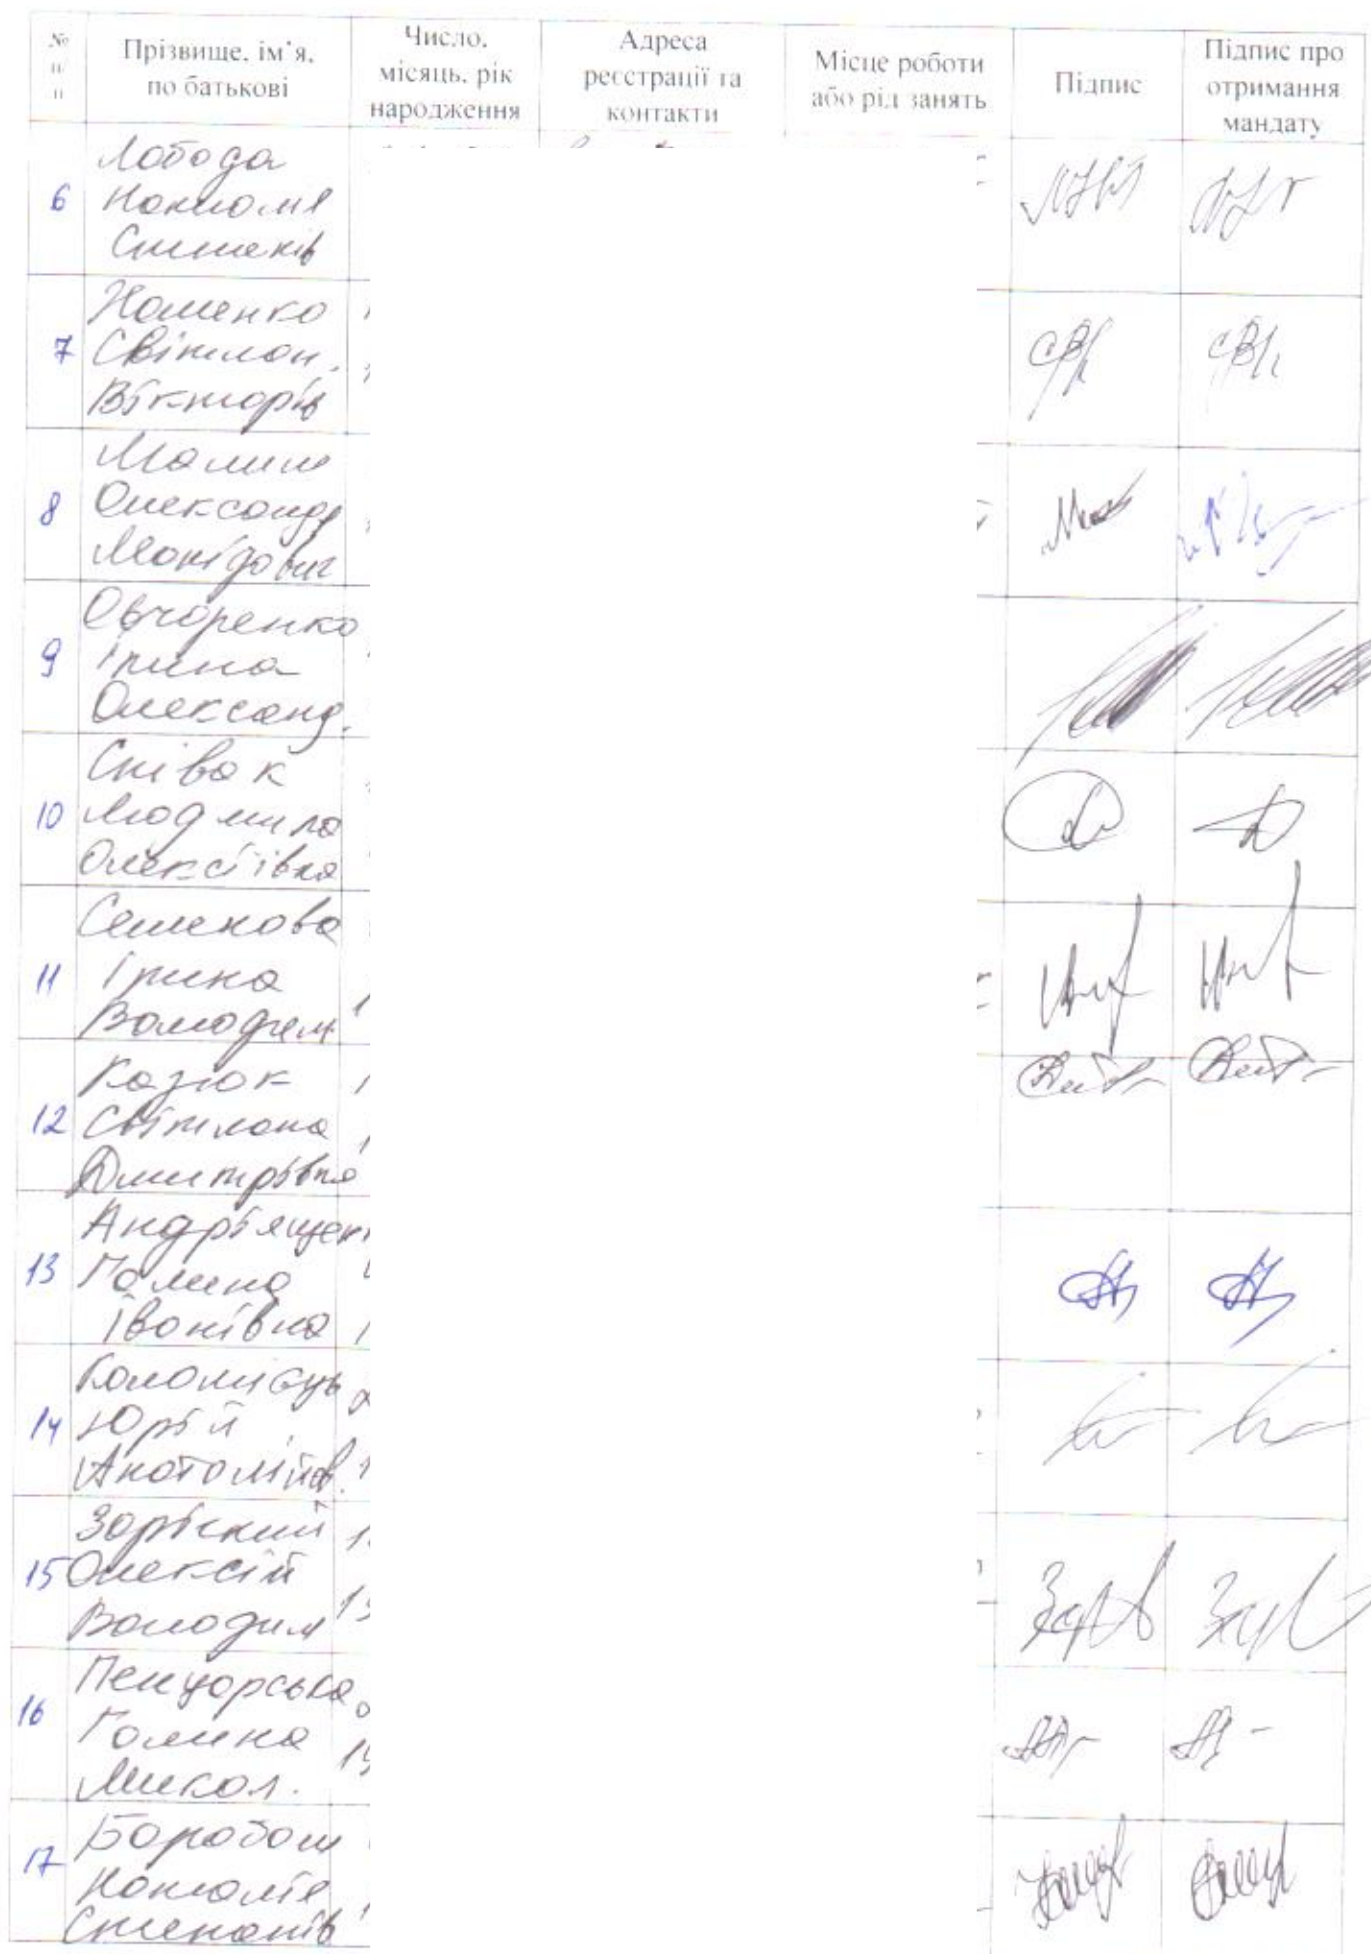 № п п
Прізвище, ім'я, по батькові
Число, місяць, рік народження
Адреса реєстрації та контакти
Місце роботи або рід занять
Підпис
Підпис про отримання мандату
6
Лобода
Наталія
7
Світлан.
Вікторів
8
Малиш
Олександр
9
Овчаренко
Ірина
Олександ.
10
Співак
Людмила
Олексіївна
11
Семенова
Ірина
Володим
12
Казюк
Світлана
Дмитрівна
13
Андріящен
Галина
Іванівна
14
Коломієць
Юрій
Анатолійов.
15
Зарічний
Олексій
Володим
16
Пенцарська
Галина
Микол.
17
Барабаш
Наталія
Степанів